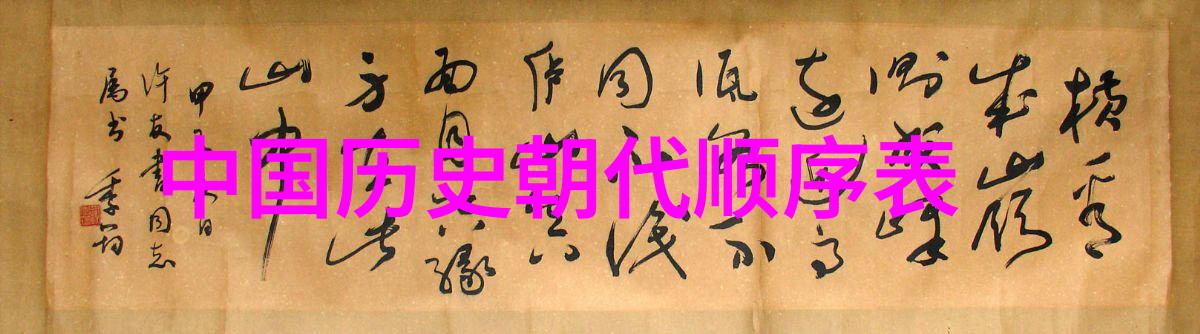 中国历史朝代顺序表
横看
成岭
侧成峰
远近高
低各不
同不识
庐山真
面目只缘
身在此
山中
许友书同志
属书